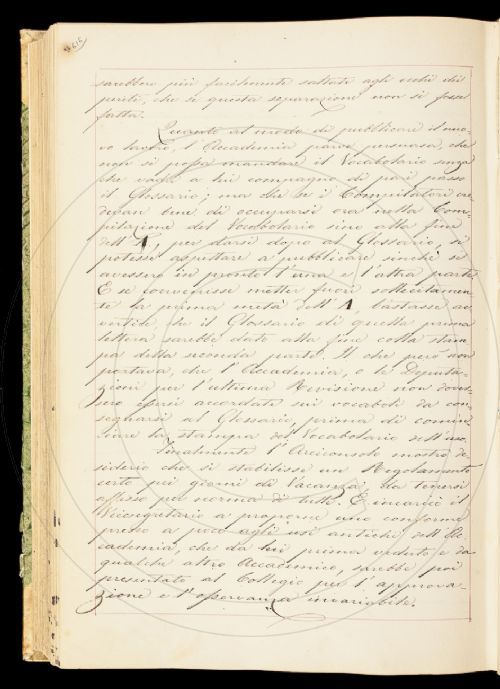 sarebbero più facilmente saltate agli occhi dei
periti, che se questa separazione non si fosse
fatta.
Quanto al modo di pubblicare il nuo-
vo lavoro, l'Accademia parve persuasa, che
non si possa mandare il Vocabolario senza
che vada a lui compagno di pari passo
il Glossario; ma che se i Compilatori cre-
devan bene di occuparsi ora nella Com-
pilazione del Vocabolario sino alla fine
dell'A, per darsi dopo al Glossario, si
potesse aspettare a pubblicare sinchè si
avessero in punto l'una e l'altra parte.
E se convenisse metter fuori sollecitamen-
te la prima metà dell'A, bastasse av-
vertire, che il Glossario di quella prima
lettera sarebbe dato alla fine colla stam-
pa della seconda parte. Il che però non
portava, che l'Accademia, o la Deputa-
zione per l'ultima Revisione non doves-
sero essersi accordate sui vocaboli da con-
segnarsi al Glossario, prima di comin-
ciare la stampa del Vocabolario dell'uso.
Finalmente l'Arciconsolo mostrò de-
siderio che si stabilisse un Regolamento
certo pei giorni di Vacanza, da tenersi
affisso per norma di tutti. E incaricò il
Vicesegretario a proporne uno conforme
presso a poco agli usi antichi dell'Ac-
cademia, che da lui prima veduto e da
qualche altro Accademico, sarebbe poi
presentato al Collegio per l'approva-
zione e l'osservanza invariabile.